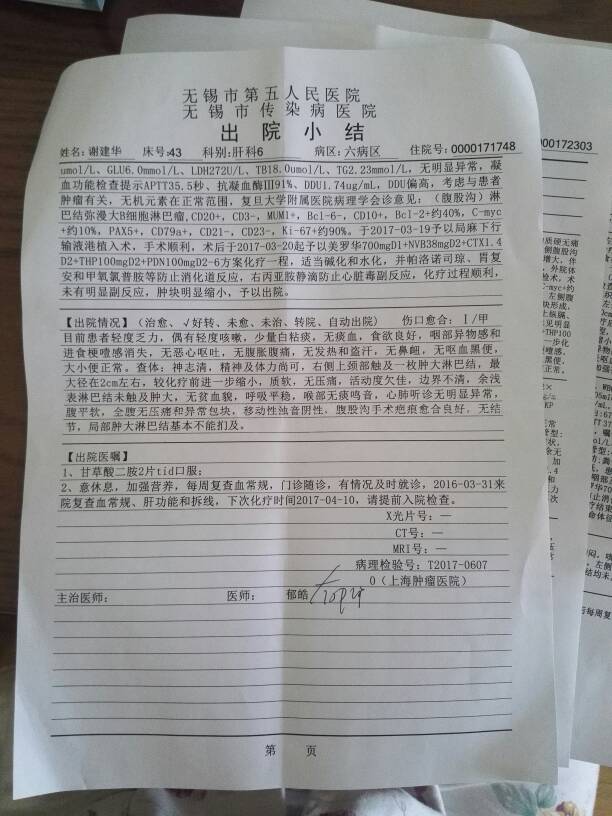 无锡市第五人民医院
无锡市传染病医院
出院小结
姓名:谢建华 床号:43 科别:肝科6 病区:六病区 住院号:0000171748
umol/L、GLU6.0mmol/L、LDH272U/L、TB18.0umol/L、TG2.23mmol/L,无明显异常,凝
血功能检查提示APTT35.5秒、抗凝血酶Ⅲ91%、DDU1.74ug/mL,DDU偏高,考虑与患者
肿瘤有关,无机元素在正常范围,复旦大学附属医院病理学会诊意见:(腹股沟)淋
巴结弥漫大B细胞淋巴瘤,CD20+,CD3-,MUM1+,Bcl-6-,CD10+,Bcl-2+约40%,C-myc
+约10%,PAX5+,CD79a+,CD21-,CD23-,Ki-67+约90%。于2017-03-19予以局麻下行
输液港植入术,手术顺利,术后于2017-03-20起予以美罗华700mgD1+NVB38mgD2+CTX1.4
D2+THP100mgD2+PDN100mgD2-6方案化疗一程,适当碱化和水化,并帕洛诺司琼、胃复
安和甲氧氯普胺等防止消化道反应,右丙亚胺静滴防止心脏毒副反应,化疗过程顺利,
未有明显副反应,肿块明显缩小,予以出院。
【出院情况】(治愈、√好转、未愈、未治、转院、自动出院) 伤口愈合:Ⅰ/甲
目前患者轻度乏力,偶有轻度咳嗽,少量白粘痰,无痰血,食欲良好,咽部异物感和
进食梗噎感消失,无恶心呕吐,无腹胀腹痛,无发热和盗汗,无鼻衄,无呕血黑便,
大小便正常。查体:神志清,精神及体力尚可,右侧上颈部触及一枚肿大淋巴结,最
大径在2cm左右,较化疗前进一步缩小,质软,无压痛,活动度欠佳,边界不清,余浅
表淋巴结未触及肿大,无贫血貌,呼吸平稳,喉部无痰鸣音,心肺听诊无明显异常,
腹平软,全腹无压痛和异常包块,移动性浊音阴性,腹股沟手术疤痕愈合良好,无结
节,局部肿大淋巴结基本不能扪及。
【出院医嘱】
1、甘草酸二胺2片tid口服;
2、意休息,加强营养,每周复查血常规,门诊随诊,有情况及时就诊,2016-03-31来
院复查血常规、肝功能和拆线,下次化疗时间2017-04-10,请提前入院检查。
X光片号:—
CT号:—
MRI号:—
病理检验号:T2017-0607
0(上海肿瘤医院)
主治医师: 医师: 郁皓
第 页
0000172303